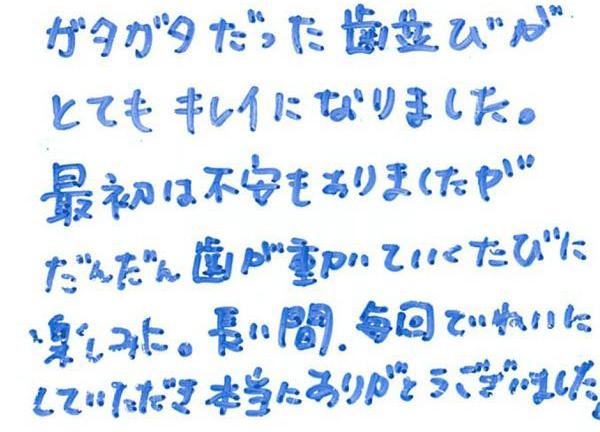 ガタガタだった歯並びが
とてもキレイになりました。
最初は不安もありましたが
だんだん歯が動いていくたびに
楽しみに。長い間、毎回ていねいに
していただき本当にありがとうございました。